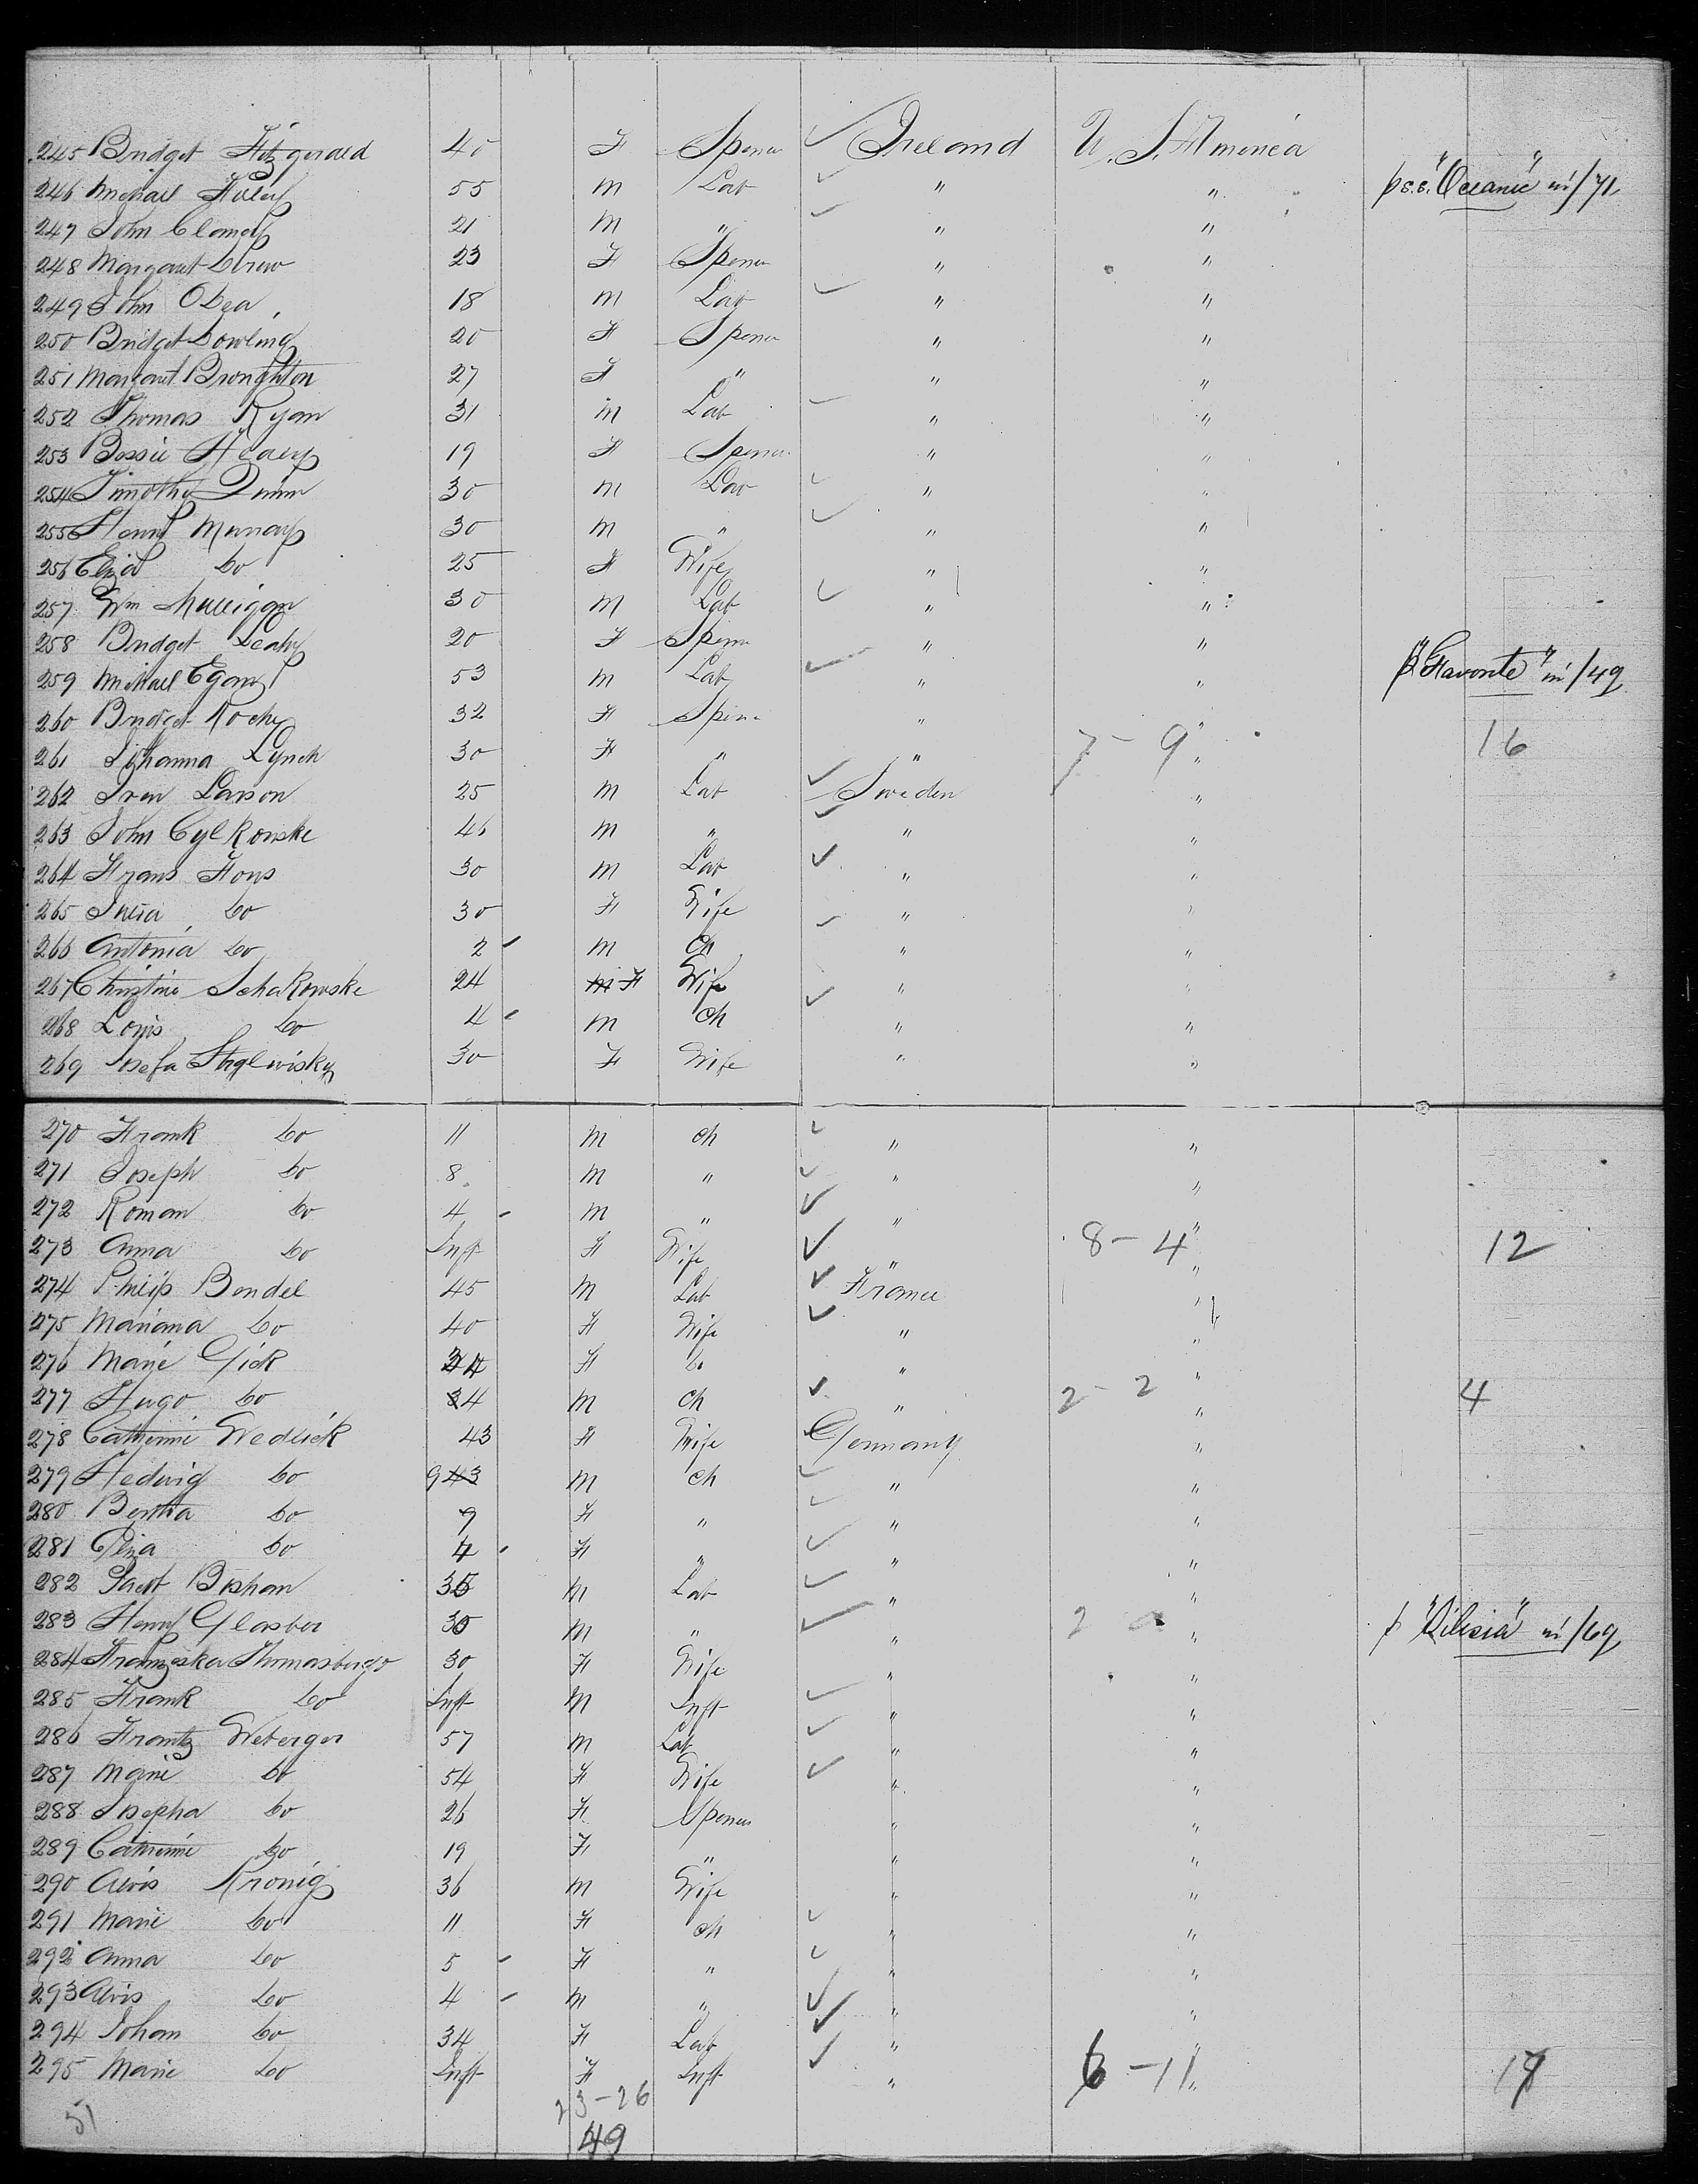 245 Bridget Fitzgerald 40 F Spiner Ireland U. S. America
246 Michael 55 M Lab " " p s.s. "Oceanic" in /71
247 John Clancy 21 M " " "
248 Margaret Drew 23 F Spiner " "
249 John ODea 18 M Lab " "
250 Bridget Dowling 20 F Spiner " "
251 Margaret Broughton 27 F " " "
252 Thomas Ryan 31 M Lab " "
253 Bessie 19 F Spiner " "
254 Timothy Quinn 30 M Lab " "
255 Henry Murray 30 M " " "
256 Eliza Do 25 F Wife " "
257 Wm Mulligan 30 M Lab " "
258 Bridget Leahy 20 F Spiner " "
259 Michael Egan 53 M Lab " " p "Favorite" in /49
260 Bridget Roche 32 F Spiner " "
261 Johanna Lynch 30 F " " 7 - 9 " 16
262 Larson 25 M Lab Sweden "
263 John Cylkowske 46 M " " "
264 Frans Fons 30 M Lab " "
265 Julia Do 30 F Wife " "
266 Antonia Do 2 M Ch " "
267 Christine Schakowske 24 M F Wife " "
268 Louis Do 4 M Ch " "
269 Josefa 30 F Wife " "
270 Frank Do 11 M Ch " "
271 Joseph Do 8 M " " "
272 Roman Do 4 M " " "
273 Anna Do Inft F Wife " 8 - 4 " 12
274 Philip Bendel 45 M Lab France "
275 Mariana Do 40 F Wife " "
276 Marie Gick 24 F Do " "
277 Hugo Do 4 M Ch " 2 - 2 " 4
278 Catherine Wedlick 43 F Wife Germany "
279 Hedwig Do 9 43 M Ch " "
280 Bertha Do 9 F " " "
281 Eliza Do 4 F " " "
282 Bishan 35 M Lab " "
283 Henry Glasber 30 M " " 2 " p "Silesia" in /69
284 Franziska Thomasbergo 30 F Wife " "
285 Frank Do Inft M Inft " "
286 Frantz Weberger 57 M Lab " "
287 Marie Do 54 F Wife " "
288 Josepha Do 26 F Spiner " "
289 Catherine Do 19 F " " "
290 Alois Kronig 36 M Wife " "
291 Marie Do 11 F Ch " "
292 Anna Do 5 F " " "
293 Alois Do 4 M " " "
294 Johan Do 34 F Lab " "
295 Marie Do Inft F Inft " 6 - 11 " 17
51 23 - 26
49